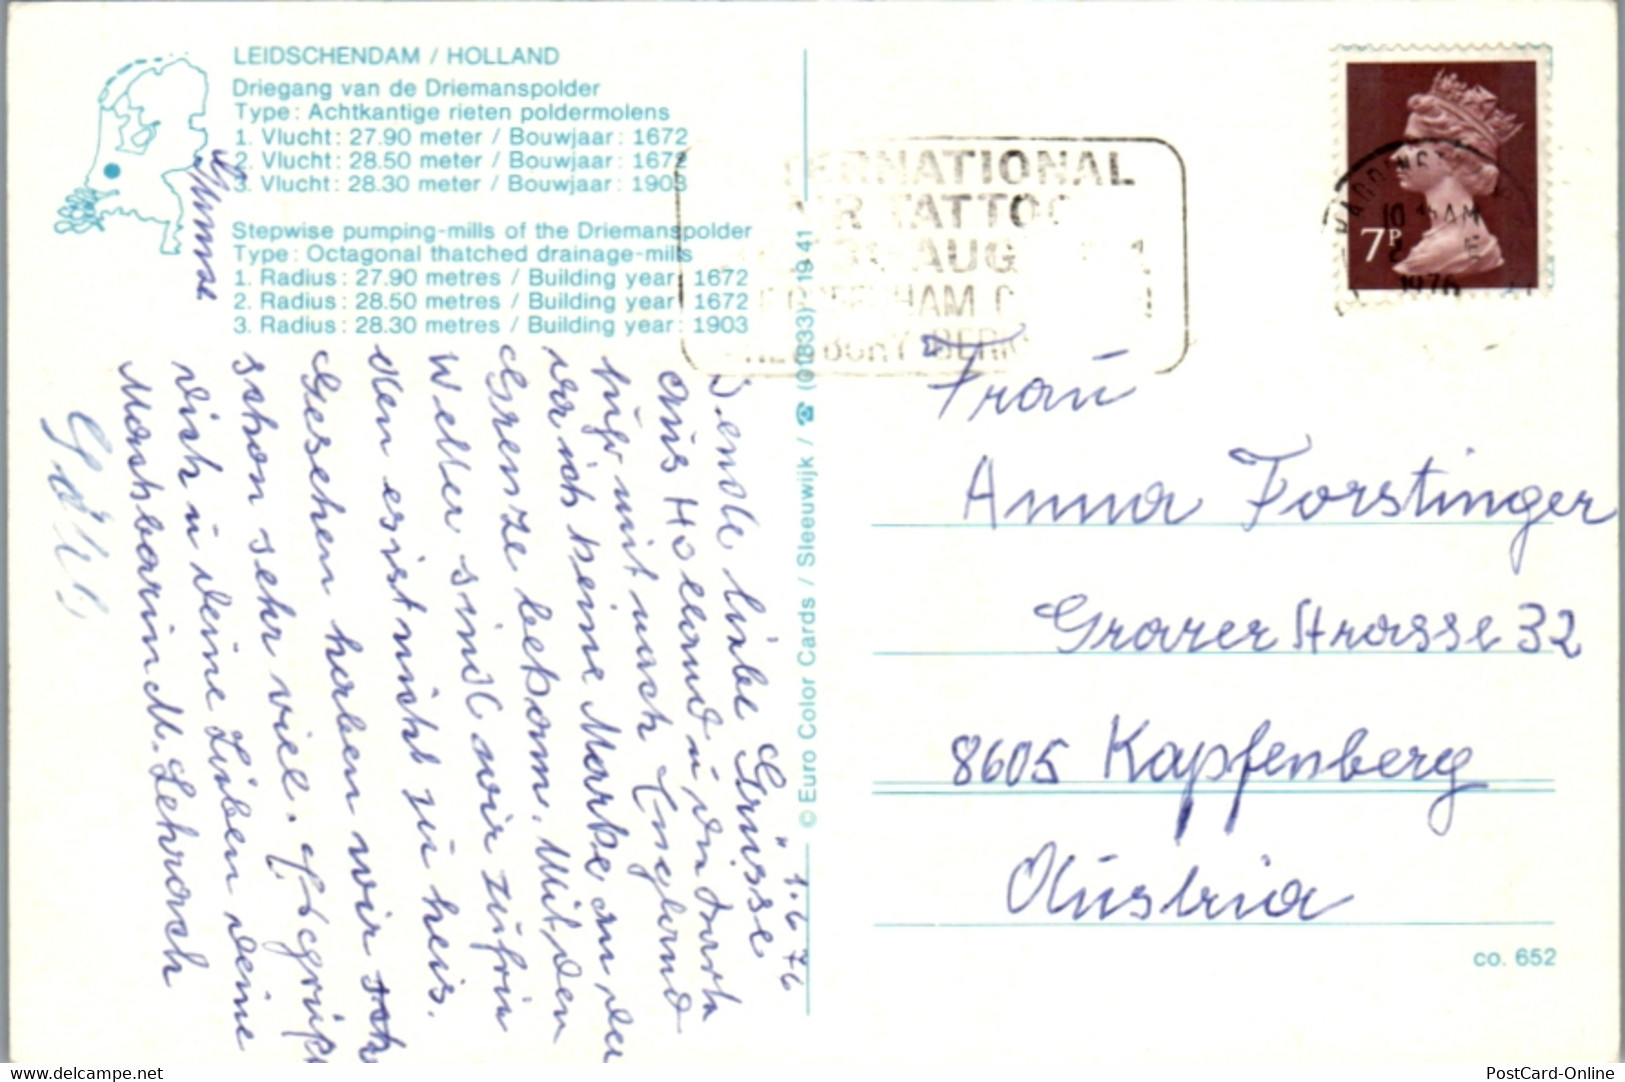 LEIDSCHENDAM / HOLLAND
Driegang van de Driemanspolder
Type: Achtkantige rieten poldermolens
1. Vlucht: 27.90 meter / Bouwjaar: 1672
2. Vlucht: 28.50 meter / Bouwjaar: 1672
3. Vlucht: 28.30 meter / Bouwjaar: 1903
Stepwise pumping-mills of the Driemanspolder
Type: Octagonal thatched drainage-mills
1. Radius: 27.90 metres / Building year: 1672
2. Radius: 28.50 metres / Building year: 1672
3. Radius: 28.30 metres / Building year: 1903
© Euro Color Cards / Sleeuwijk / ☎ (01833) - 19 41
TERNATIONAL
TATTOO
AUG
HAM
7P
10
AM
1976
1.6.76
Sende liebe Grüsse
aus Holland ü
mit nach England
ich keine Marke an der
Grenze bekam. Mit den
Wetter sind wir zufrie
den es ist nicht zu heis.
Gesehen haben wir
schon sehr viel. Es grüßt
dich ü deine Lieben deine
Nachbarin M.
Frau
Anna Forstinger
Grazer Strasse 32
8605 Kapfenberg
Austria
co. 652
PostCard-Online
delcampe.net